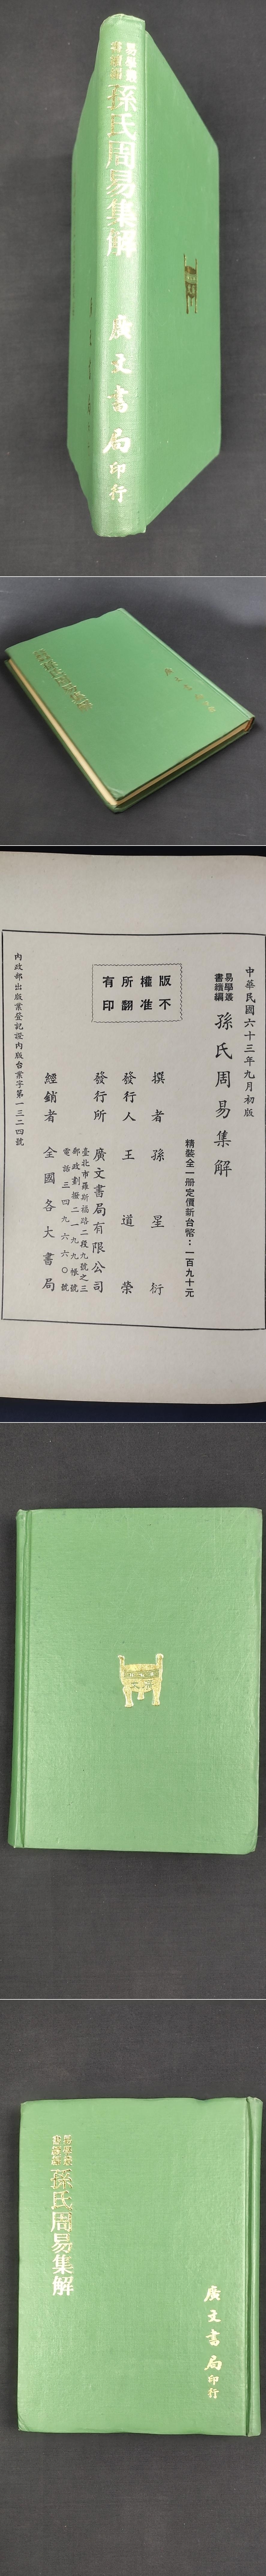 易學叢
書續編
孫氏周易集解
廣文書局印行
中華民國六十三年九月初版
易學叢
書續編
孫氏周易集解
精裝全一册定價新台幣：一百九十元
版權所有
不准翻印
撰者 孫星衍
發行人 王道榮
發行所 廣文書局有限公司
臺北市羅斯福路二段九號之三
郵政劃撥二一九九帳號
電話三四九六六〇號
經銷者 全國各大書局
內政部出版業登記證內版台業字第一三二四號
易學叢
書續編
孫氏周易集解
廣文書局印行